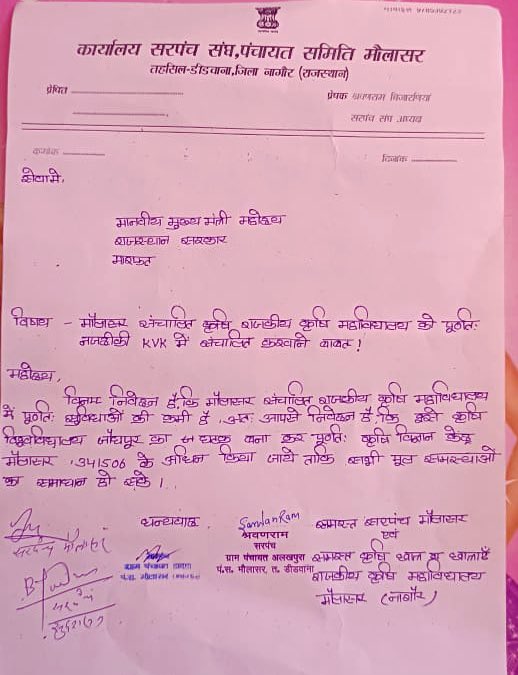 कार्यालय सरपंच संघ, पंचायत समिति मौलासर
तहसिल-डीडवाना, जिला नागौर (राजस्थान)
प्रेषित
प्रेषक श्रवणराम बिजारणियां
सरपंच संघ अध्यक्ष
क्रमांक
दिनांक
सेवामे,
माननीय मुख्य मंत्री महोदय
राजस्थान सरकार
मारफत
विषय - मौलासर संचालित कृषि राजकीय कृषि महाविधालय को पूर्णतः
नजदीकी KVK में संचालित करवाने बाबत !
महोदय,
विनम्र निवेदन है, कि मौलासर संचालित राजकीय कृषि महाविधालय
में पूर्णतः सुविधाओं की कमी है अतः आपसे निवेदन है, कि इसे कृषि
विश्वविधालय जोधपुर का घटक बना कर पूर्णतः कृषि विज्ञान केन्द्र
मौलासर 341506 के अधिन किया जाये ताकि सभी मूल समस्याओं
का समाधान हो सके ।
धन्यवाद
SarwanRam
श्रवणराम
सरपंच
ग्राम पंचायत अलखपुरा
पं.स. मौलासर, त. डीडवाना
समस्त सरपंच मौलासर
एवं
समस्त कृषि छात्र व छात्राएँ
राजकीय कृषि महाविधालय
मौलासर (नागौर)
सरपंच मौलासर
ग्राम पंचायत
पं.स. मौलासर
सरपंच